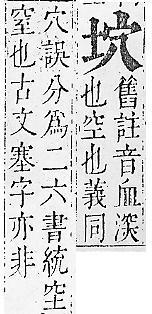 坹
舊註音血深
也空也義同
穴誤分爲二六書統空
窒也古文塞字亦非